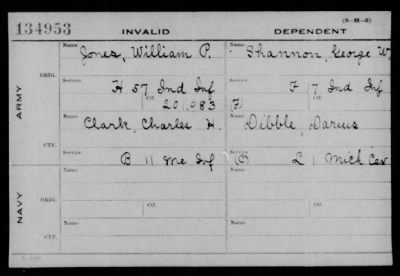 134953 INVALID DEPENDENT (3-H-3)
Name Name
Jones, William P. Shannon, George W
ORIG. Service Service
H 57 Ind Inf F 7 Ind Inf
Ctf. Ctf.
201,983 (F)
ARMY
Name Name
Clark, Charles H. Dibble, Darius
CTF. Service Service
B 11 Me Inf (C) L 1 Mich Cav
NAVY
Name Name
ORIG. Ctf. Ctf.
Name Name
CTF.